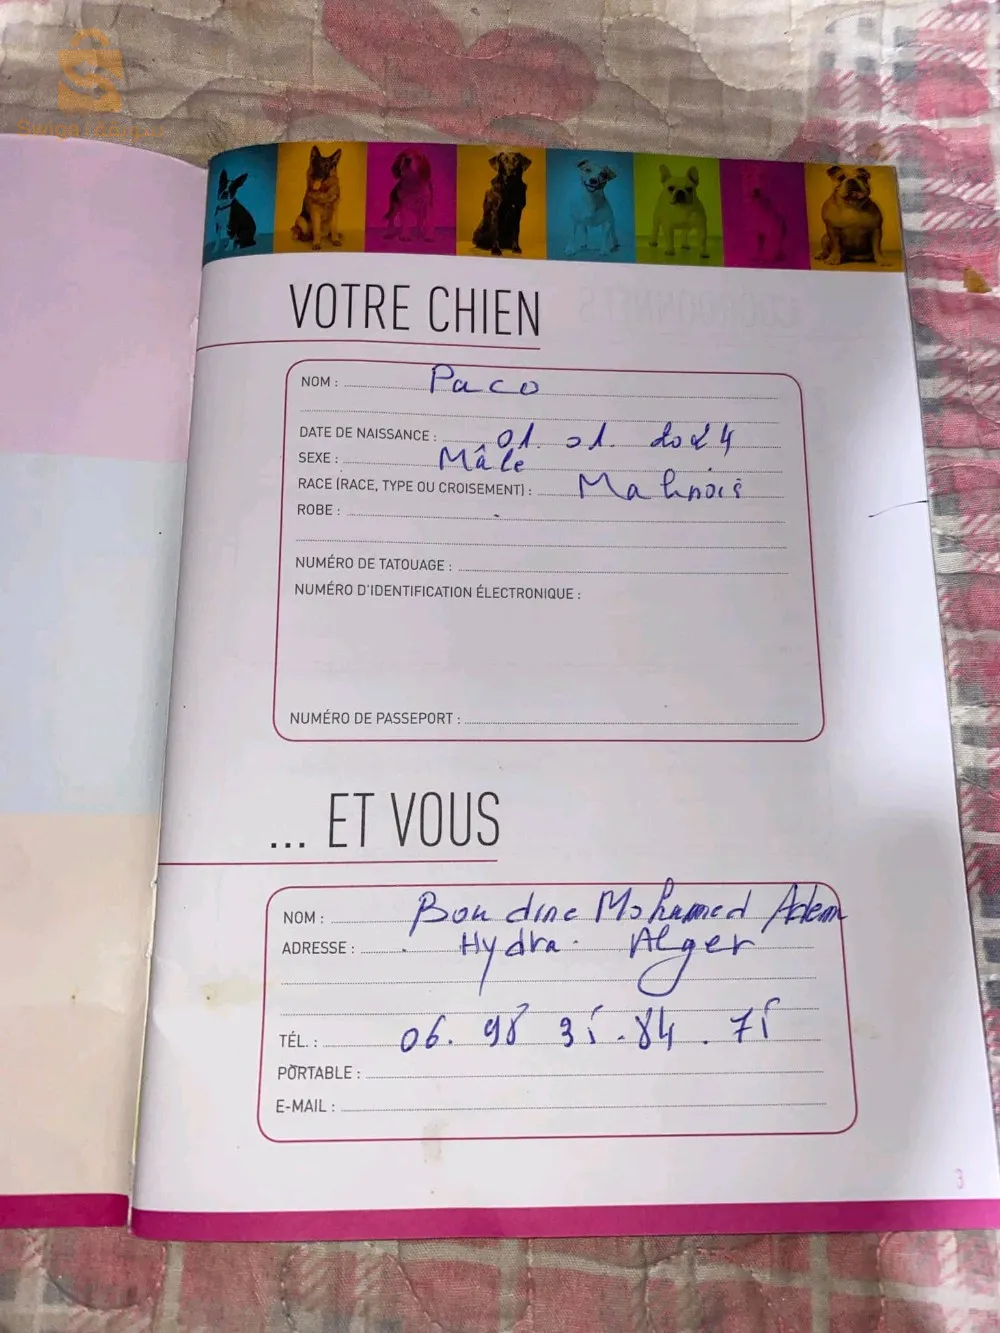 VOTRE CHIEN
NOM : Paco
DATE DE NAISSANCE : 01. 01. 2024
SEXE : Mâle
RACE (RACE, TYPE OU CROISEMENT) : Malinois
ROBE :
NUMÉRO DE TATOUAGE :
NUMÉRO D'IDENTIFICATION ÉLECTRONIQUE :
NUMÉRO DE PASSEPORT :
... ET VOUS
NOM : Boudine Mohamed Adem
ADRESSE : Hydra. Alger
TÉL. : 06. 98 35.84.75
PORTABLE :
E-MAIL :
3